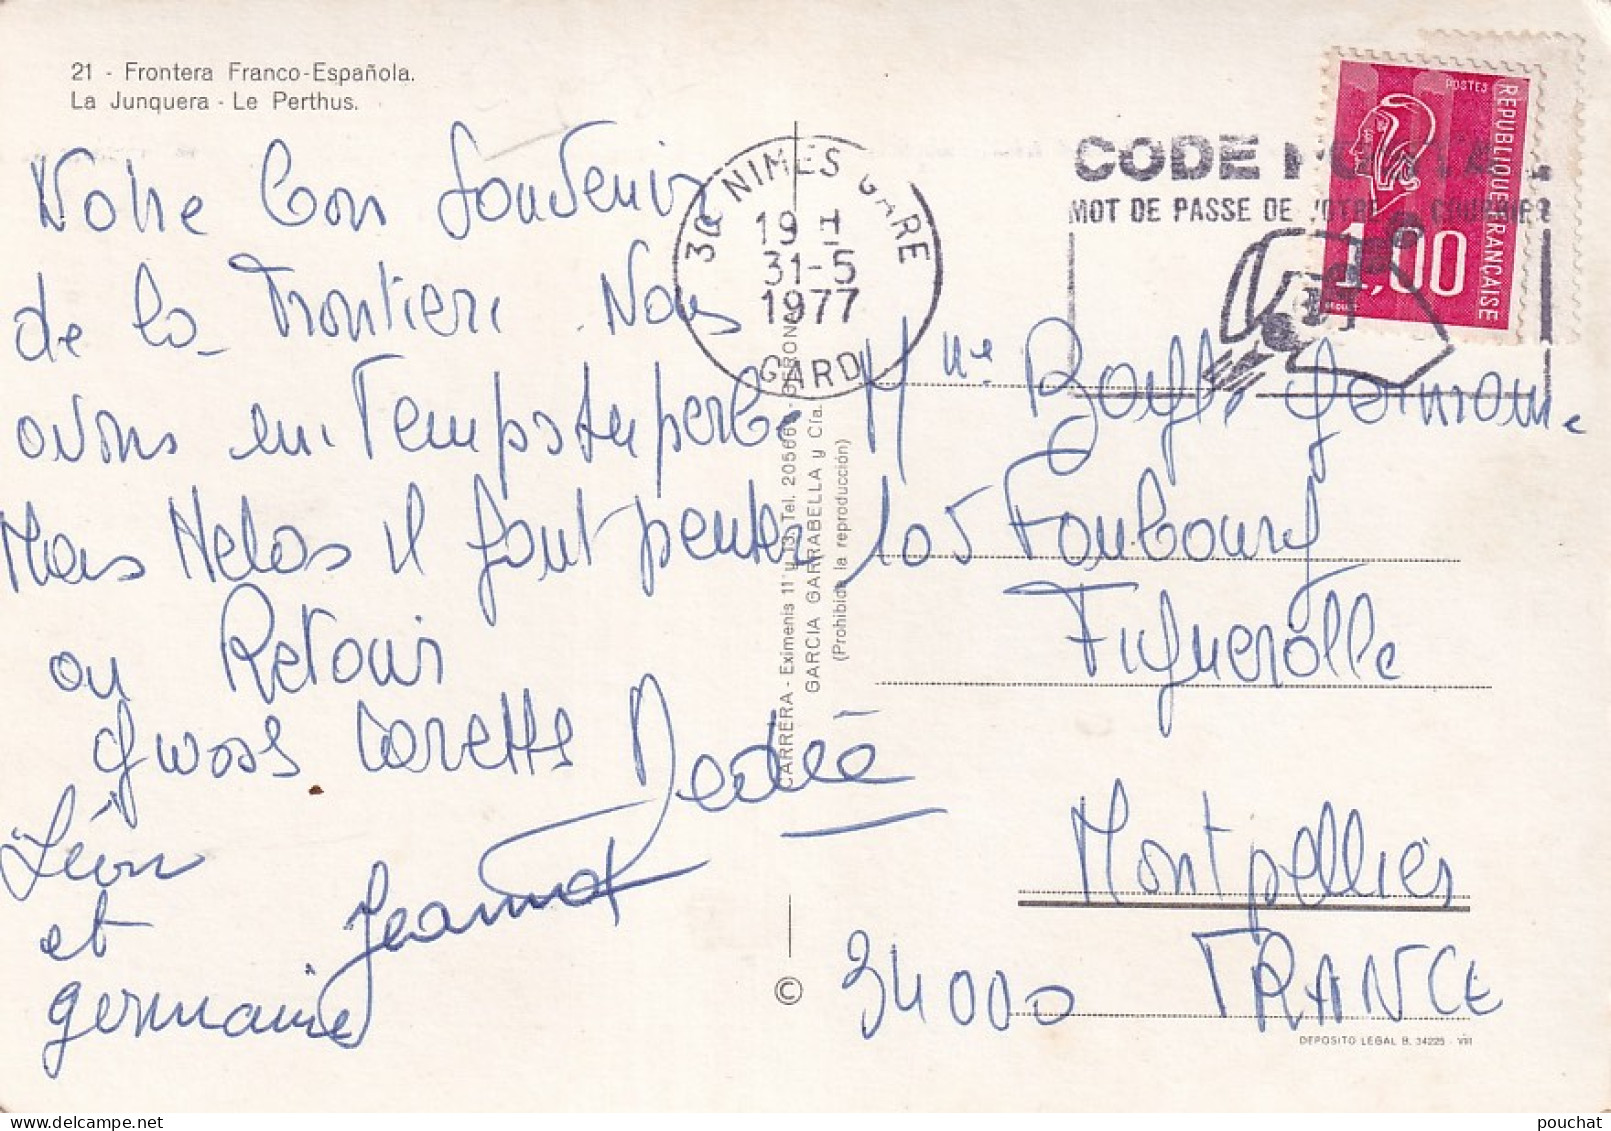 21 - Frontera Franco-Española.
La Junquera - Le Perthus.
Notre bon Souvenir
de la Frontière Nous
avons un Temps Superbe
Mais Helas il faut penser
au Retour
Grosse
Dédée
Léon
et
germaine
Jeannot
30 NIMES GARE
19 H
31-5
1977
GARD
CODE POSTAL
MOT DE PASSE DE VOTRE COURRIER
POSTES
REPUBLIQUE FRANÇAISE
1,00
CARRERA - Eximenis 11 y 13 - Tel.
GARCIA GARRABELLA y Cía.
(Prohibida la reproducción)
Mme Germaine
105 Faubourg
Figuerolle
Montpellier
34000 FRANCE
©
DEPOSITO LEGAL B. 34225 - VIII
pouchat